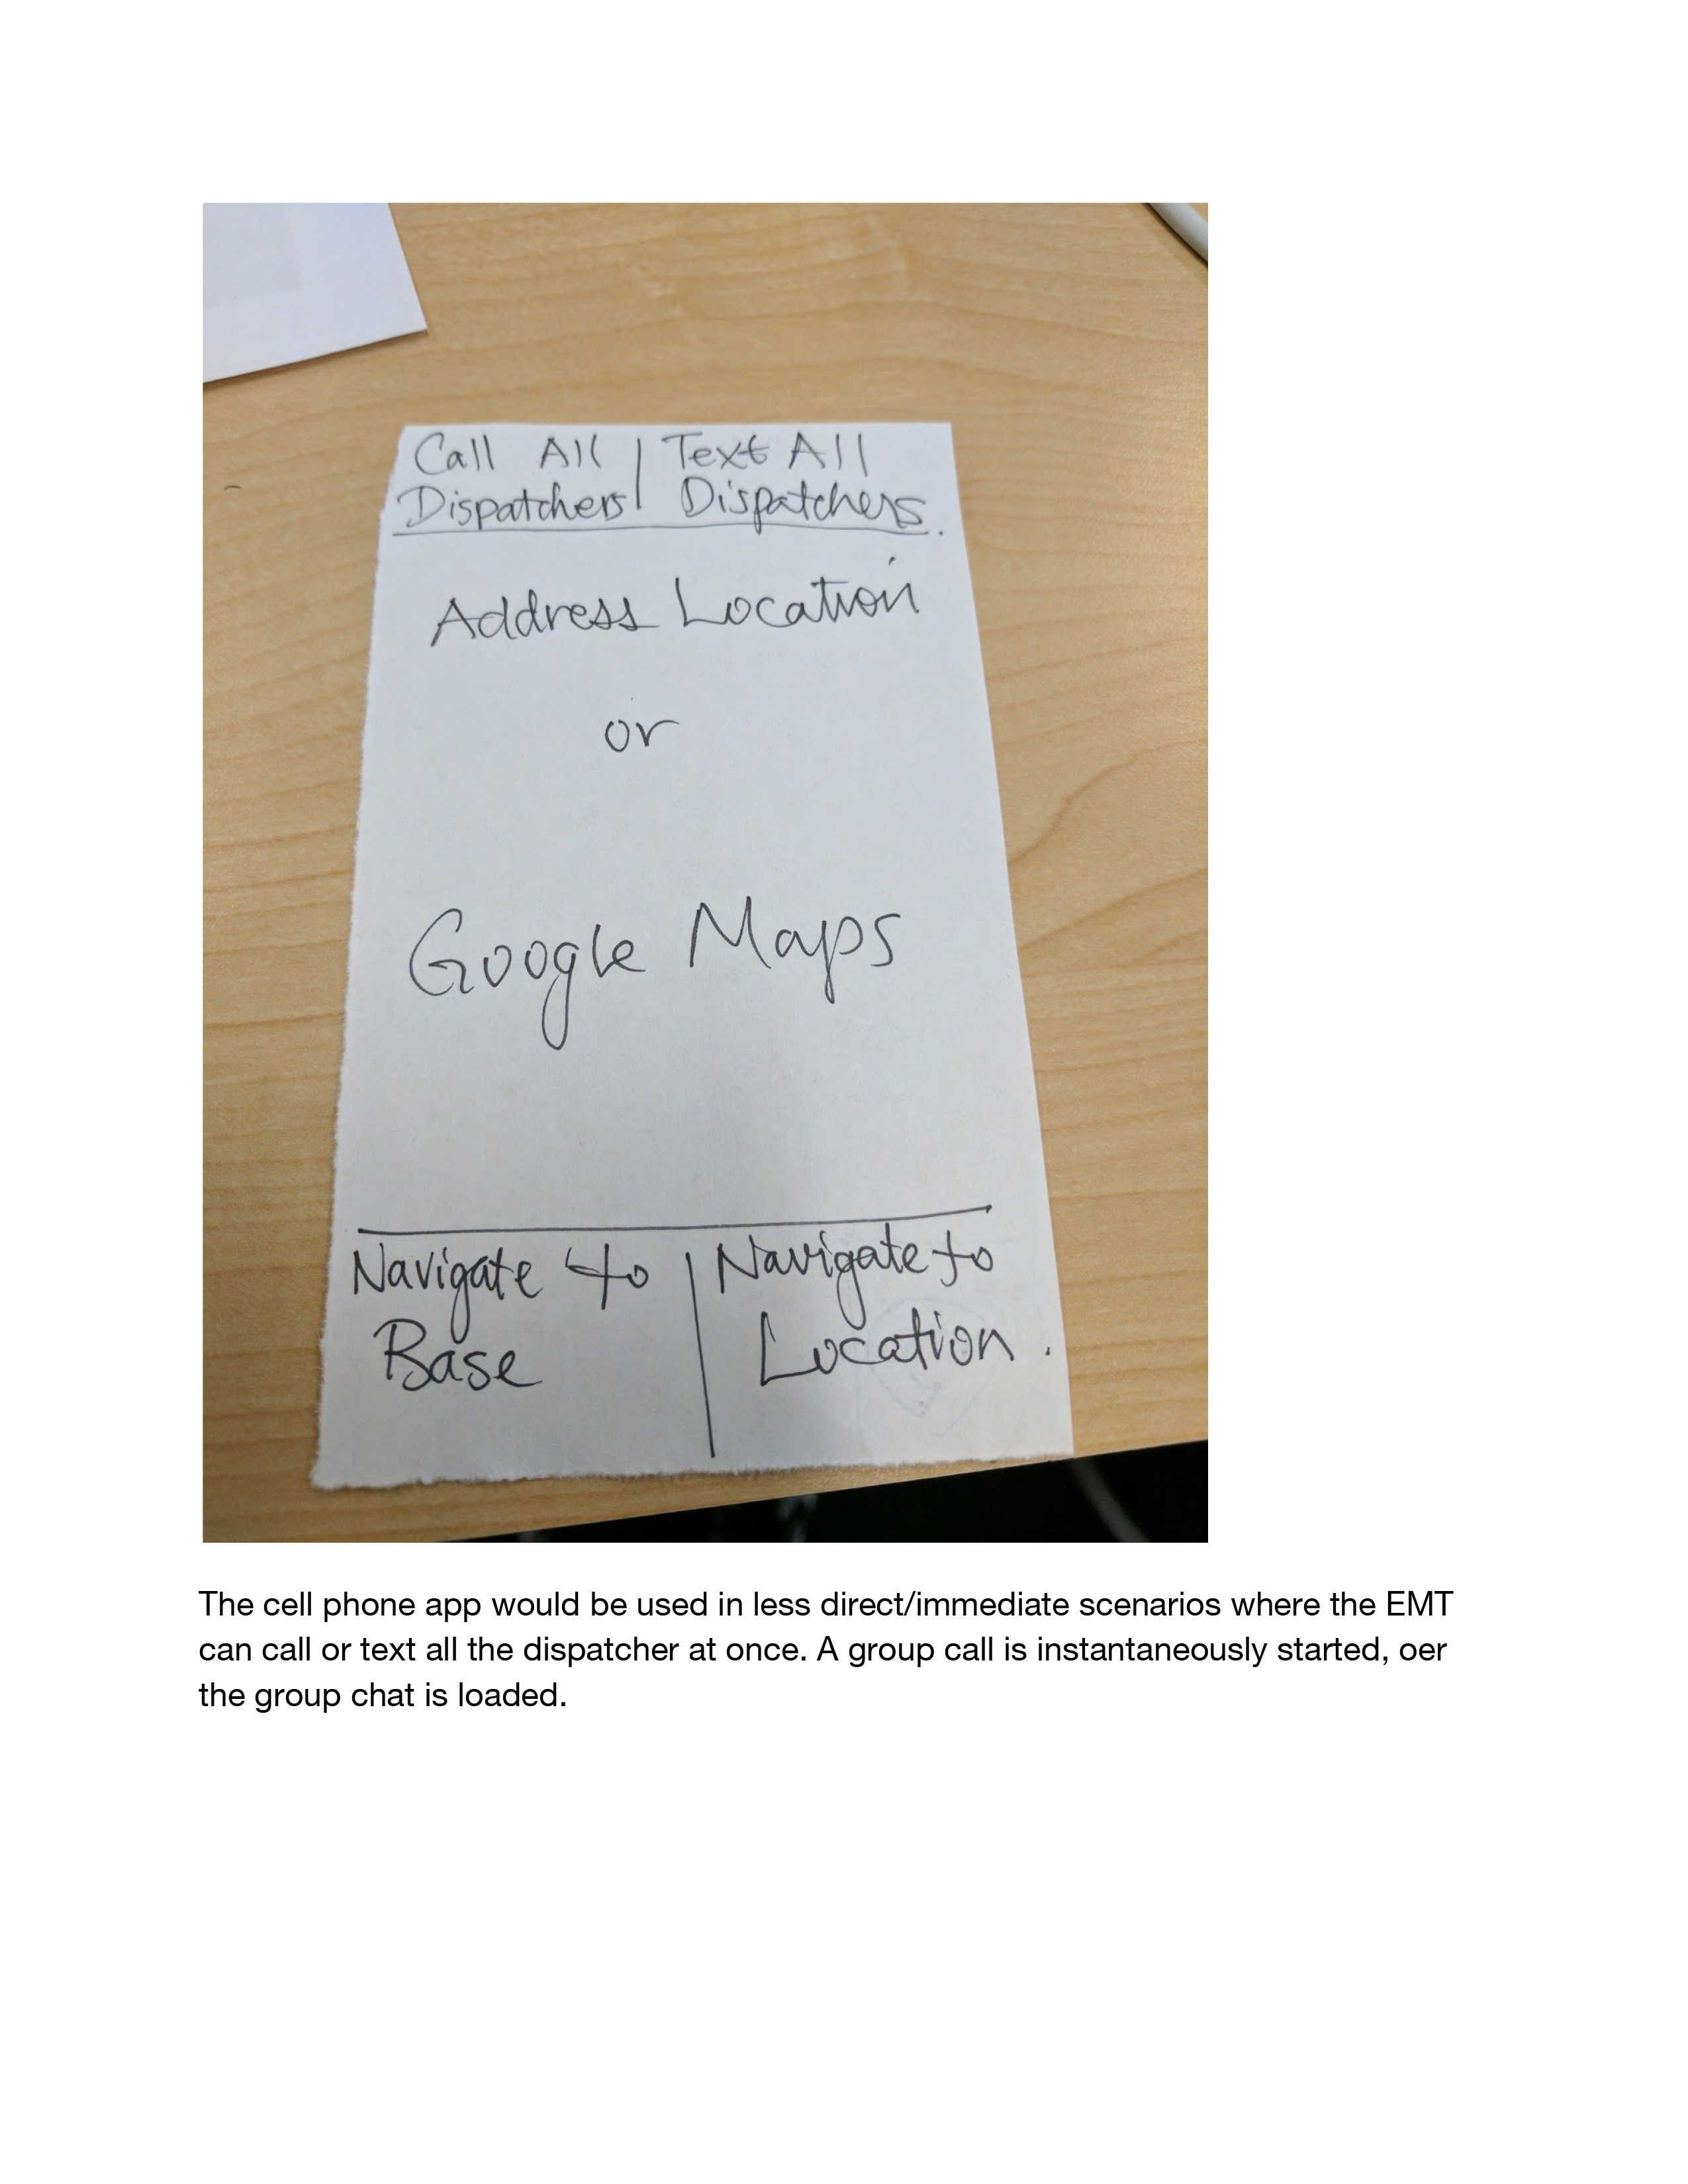 Call All | Text All
Dispatchers | Dispatchers.
Address Location
or
Google Maps
Navigate to | Navigate to
Base | Location.
The cell phone app would be used in less direct/immediate scenarios where the EMT
can call or text all the dispatcher at once. A group call is instantaneously started, oer
the group chat is loaded.